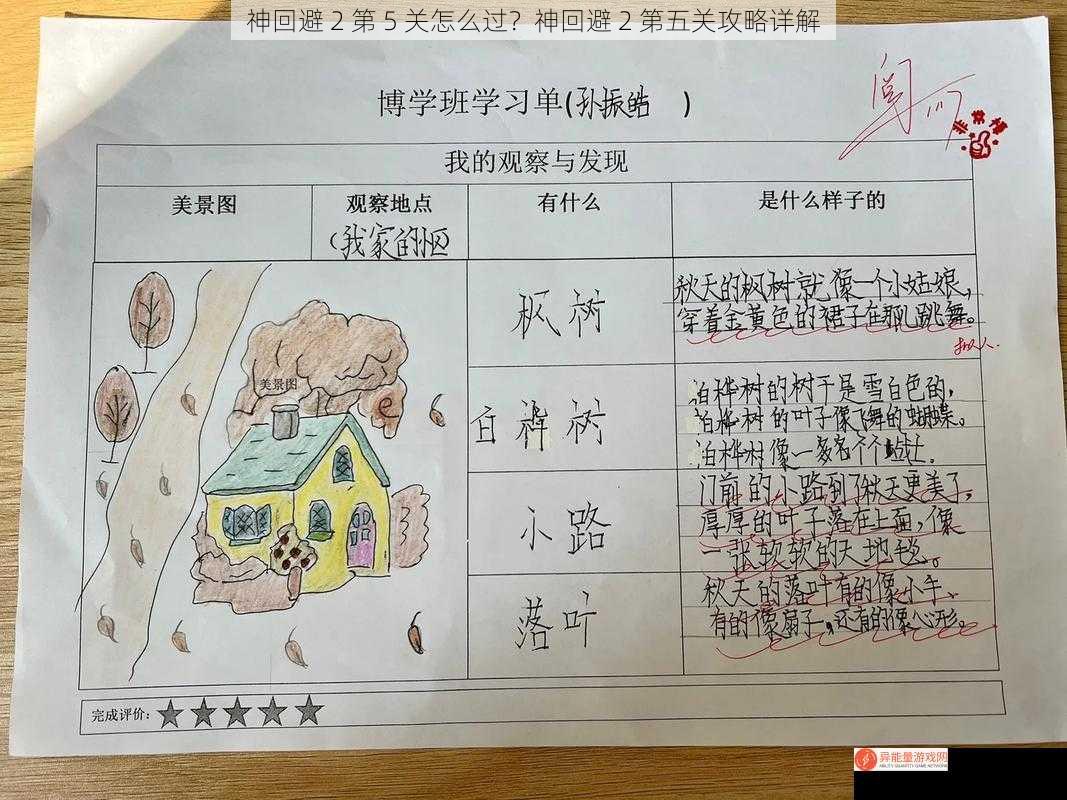 神回避 2 第 5 关怎么过？神回避 2 第五关攻略详解
博学班学习单(孙振皓 )
阅
非常棒
我的观察与发现
美景图
观察地点
(我家的小区)
有什么
是什么样子的
美景图
枫树
秋天的枫树就像一个小姑娘，
穿着金黄色的裙子在那儿跳舞。
拟人.
白桦树
泊桦树的树干是雪白色的，
泊桦树的叶子像飞舞的蝴蝶。
泊桦树像一名名个个战士.
小路
门前的小路到了秋天更美了，
厚厚的叶子落在上面，像
一张软软的大地毯。
落叶
秋天的落叶有的像小牛、
有的像扇子，还有的像心形。
完成评价：★★★★★
异能量游戏网
ABILITY QUANTITY GAME NETWORK